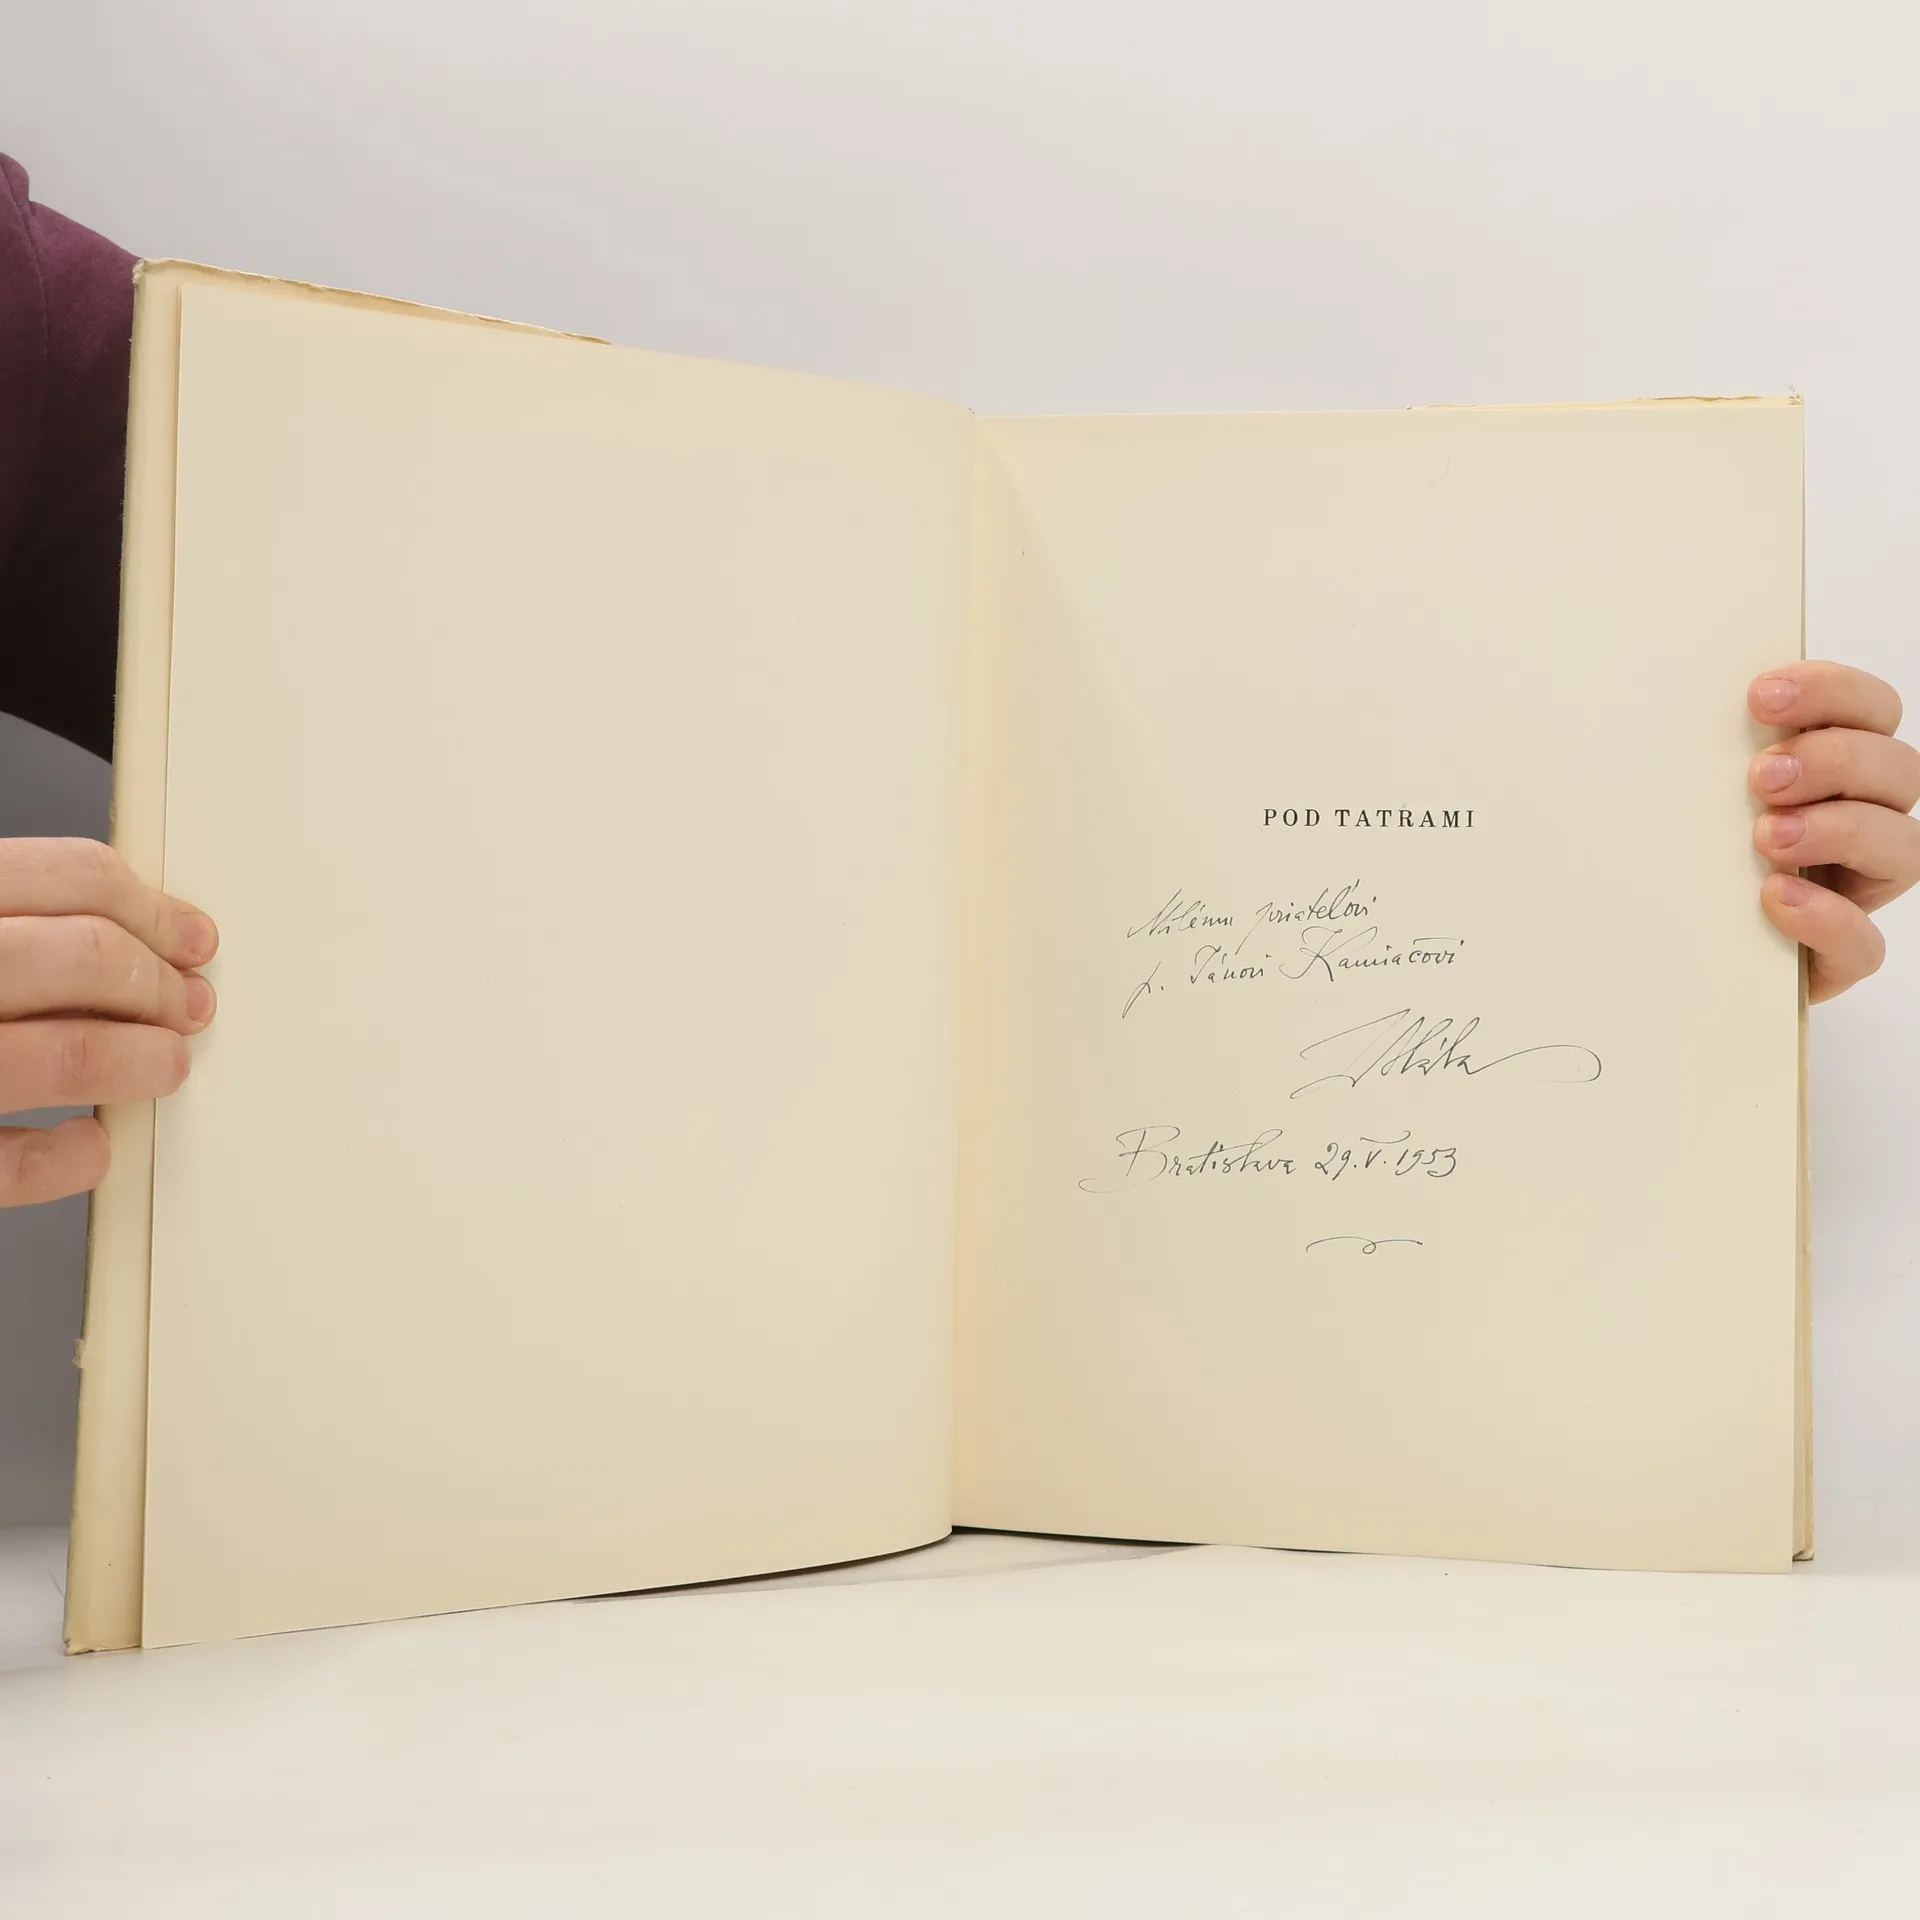 POD TATRAMI
Milému priateľovi
p. Jánovi Kamiačovi
Bratislava 29.V.1953